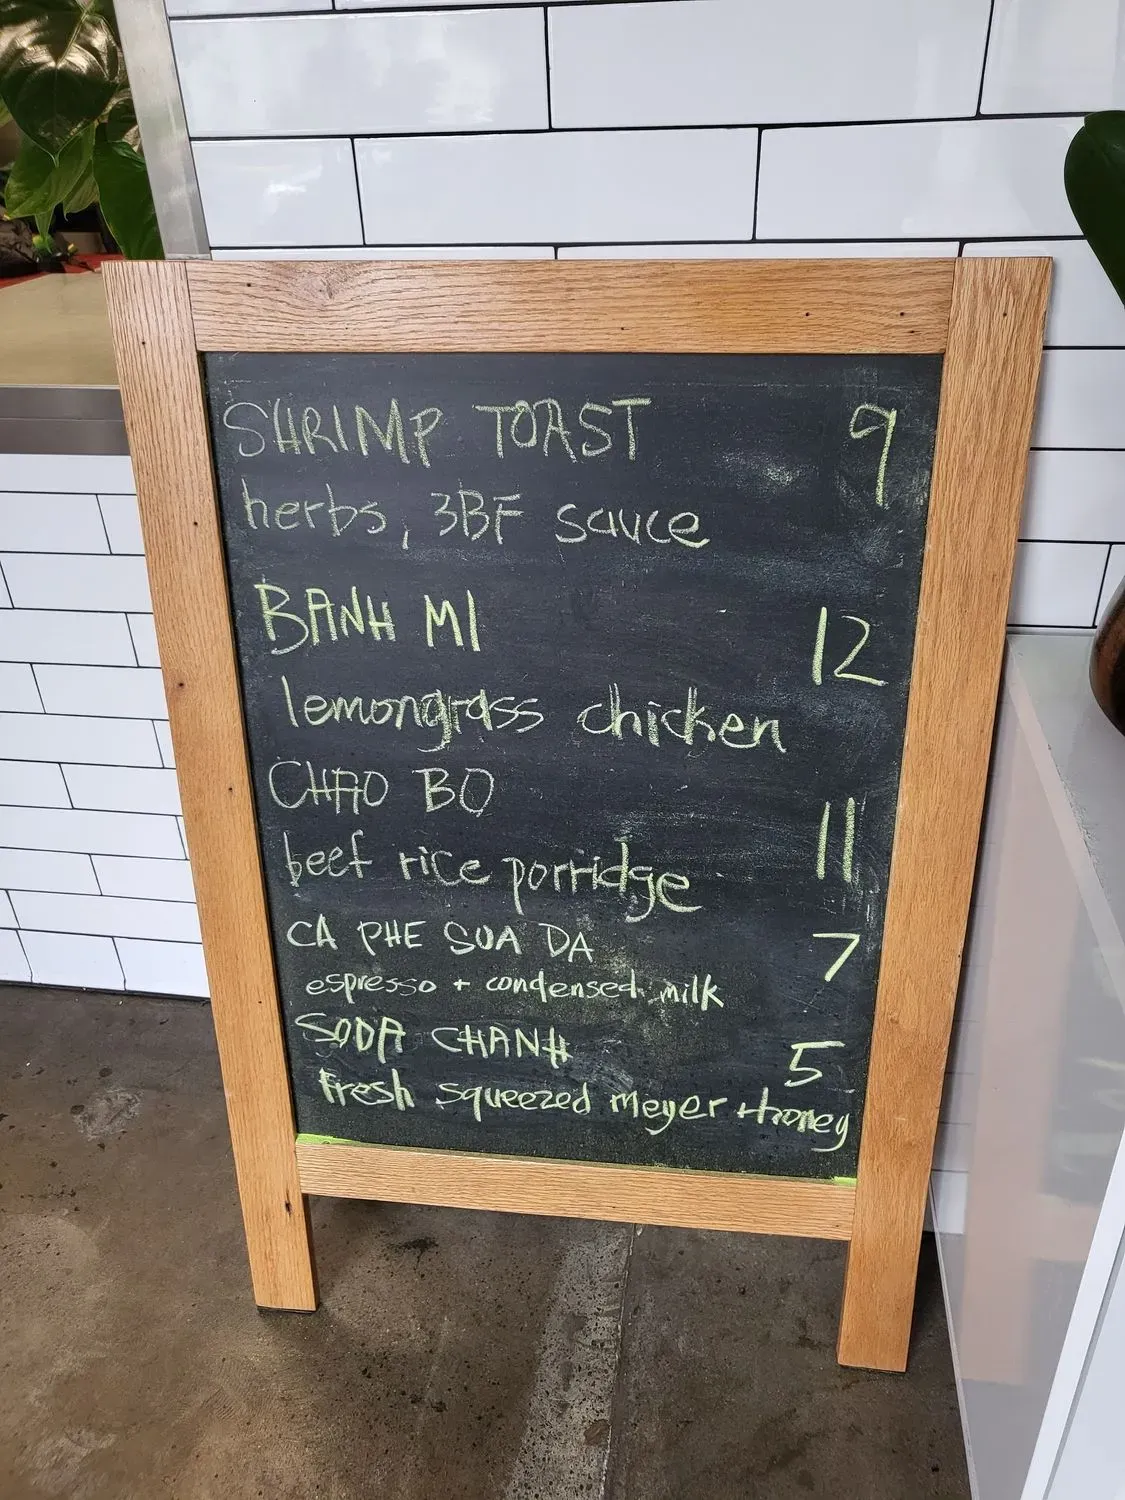 SHRIMP TOAST 9
herbs, 3BF sauce
BANH MI 12
lemongrass chicken
CHAO BO 11
beef rice porridge
CA PHE SUA DA 7
espresso + condensed milk
SODA CHANH 5
fresh squeezed meyer + honey